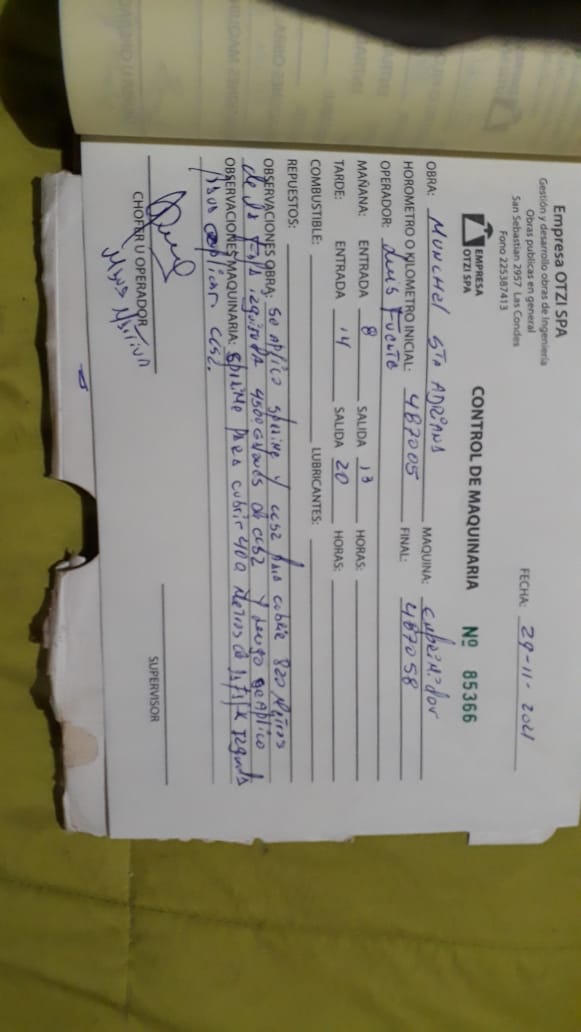 Empresa OTZI SPA
Gestión y desarrollo obras de Ingenieria
Obras publicas en general
San Sebastian 2957 Las Condes
Fono 225387413
FECHA: 29-11-2021
EMPRESA
OTZI SPA
CONTROL DE MAQUINARIA Nº 85366
OBRA: MUNCHEL STA ADRIANA MAQUINA: EMPRIMIDOR
HOROMETRO O KILOMETRO INICIAL: 487005 FINAL: 487058
OPERADOR: Luis Fuente
MAÑANA: ENTRADA 8 SALIDA 13 HORAS:
TARDE: ENTRADA 14 SALIDA 20 HORAS:
COMBUSTIBLE: LUBRICANTES:
REPUESTOS:
OBSERVACIONES OBRA: Se APlico y para cubrir 820 Metros
de la 4500 de y luego se Aplico
OBSERVACIONES MAQUINARIA: PARA CUBRIR 400 Metros de
aplicar
CHOFER U OPERADOR
SUPERVISOR